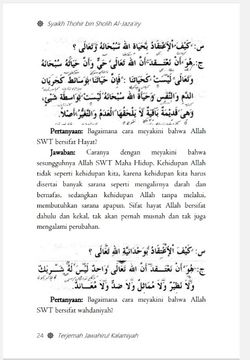 Syaikh Thohir bin Sholih Al-Jaza'iry
س: كَيْفَ الْاِعْتِقَادُ بِحَيَاةِ اللهِ سُبْحَانَهُ وَتَعَالَى ؟
ج: هُوَ أَنْ نَعْتَقِدَ أَنَّ اللهَ تَعَالَى حَيٌّ وَأَنَّ حَيَاتَهُ سُبْحَانَهُ
وَتَعَالَى لَيْسَتْ كَحَيَاتِنَا ، فَإِنَّ حَيَاتَنَا بِوَسَائِطَ كَجَرَيَانِ
الدَّمِ وَالنَّفَسِ وَحَيَاةُ اللهِ سُبْحَانَهُ لَيْسَتْ بِوَاسِطَةِ شَيْءٍ،
وَهِيَ قَدِيْمَةٌ بَاقِيَةٌ لَا يَلْحَقُهَا الْعَدَمُ وَالتَّغَيُّرُ
Pertanyaan: Bagaimana cara meyakini bahwa Allah
SWT bersifat Hayat?
Jawaban: Caranya dengan meyakini bahwa
sesungguhnya Allah SWT Maha Hidup. Kehidupan Allah
tidak seperti kehidupan kita, karena kehidupan kita harus
disertai banyak sarana seperti mengalirnya darah dan
bernafas, sedangkan kehidupan Allah tanpa melalui,
membutuhkan sarana apapun. Sifat hayat Allah bersifat
dahulu dan kekal, tak akan pernah musnah dan tak juga
mengalami perubahan.
س: كَيْفَ الْاِعْتِقَادُ بِوَحْدَانِيَّةِ اللهِ تَعَالَى ؟
ج: هُوَ أَنْ نَعْتَقِدَ أَنَّ اللهَ تَعَالَى وَاحِدٌ لَيْسَ لَهُ شَرِيْكٌ
وَلَا نَظِيْرٌ وَلَا مُمَاثِلٌ وَلَا ضِدٌّ وَلَا مُعَانِدٌ.
Pertanyaan: Bagaimana cara meyakini bahwa Allah
SWT bersifat wahdaniyah?
24 Terjemah Jawahirul Kalamiyah